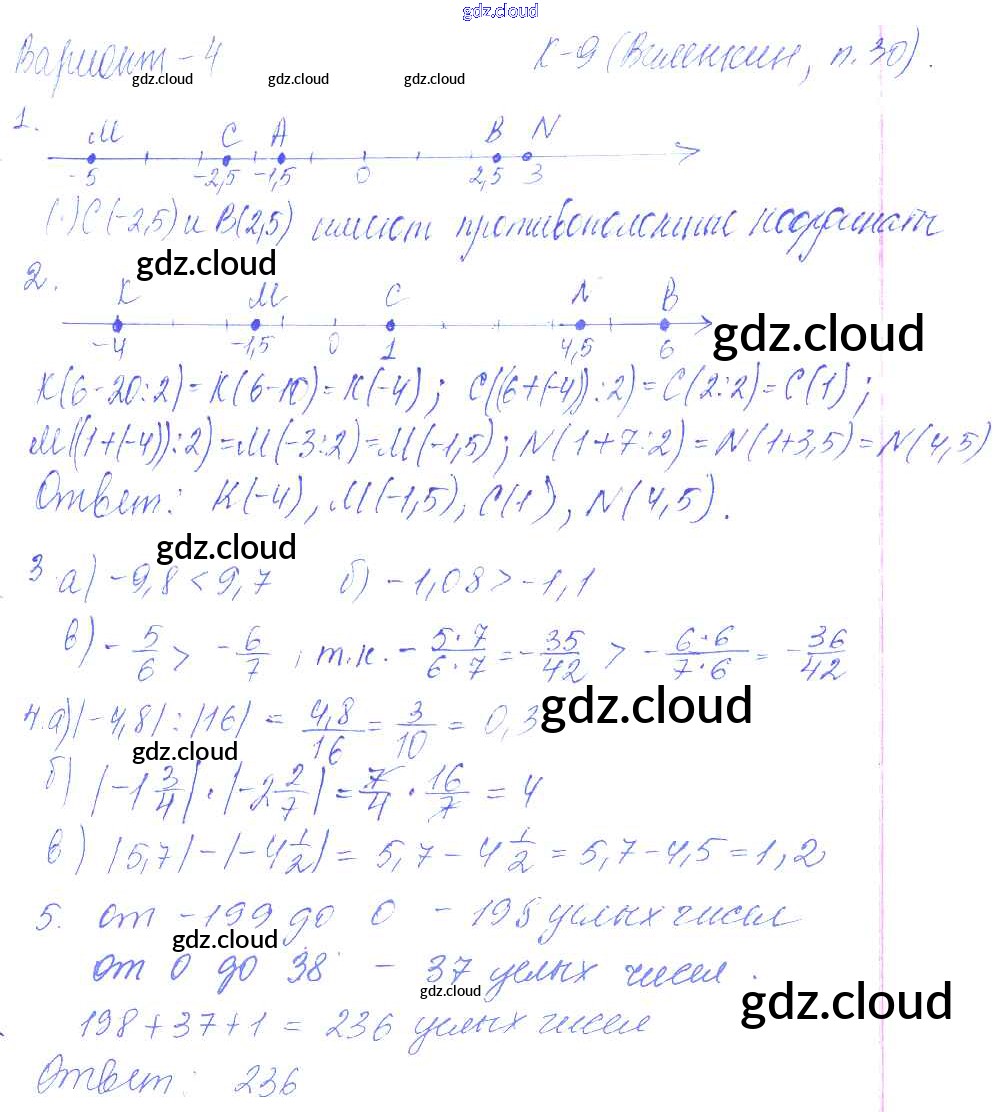 gdz.cloud
Вариант - 4 К-9 (Виленкин, п. 30).
gdz.cloud gdz.cloud gdz.cloud
1.
М С А В N
-5 -2,5 -1,5 0 2,5 3
(·) С(-2,5) и В(2,5) имеют противоположные координаты
gdz.cloud
2.
К М С N В
gdz.cloud
-4 -1,5 0 1 4,5 6
К(6-20:2)=К(6-10)=К(-4); С((6+(-4)):2)=С(2:2)=С(1);
М((1+(-4)):2)=М(-3:2)=М(-1,5); N(1+7:2)=N(1+3,5)=N(4,5)
Ответ: К(-4), М(-1,5), С(1), N(4,5).
gdz.cloud gdz.cloud
3 а) -9,8 < 9,7 б) -1,08 > -1,1
в) -5/6 > -6/7, т.к. -5·7/6·7 = -35/42 > -6·6/7·6 = -36/42
gdz.cloud
4. а) |-4,8| : |16| = 4,8/16 = 3/10 = 0,3
gdz.cloud
б) |-1 3/4| · |-2 2/7| = 7/4 · 16/7 = 4
в) |5,7| - |-4 1/2| = 5,7 - 4 1/2 = 5,7 - 4,5 = 1,2
5. от -199 до 0 - 198 целых чисел
gdz.cloud
от 0 до 38 - 37 целых чисел.
gdz.cloud gdz.cloud
198 + 37 + 1 = 236 целых чисел
Ответ: 236